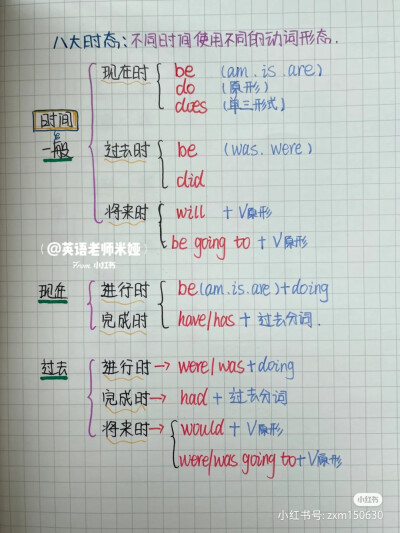 八大时态：不同时间使用不同的动词形态.
现在时 { be (am.is.are)
do (原形)
does (单三形式)
时间
一般
过去时 { be (was.were)
did
将来时 { will + V原形
be going to + V原形
@英语老师米娅
From 小红书
现在 { 进行时 { be(am.is.are)+doing
完成时 { have/has + 过去分词.
过去 { 进行时→ were/was+doing
完成时→ had + 过去分词
将来时→ { would + V原形
were/was going to+V原形
小红书
小红书号: zxm150630